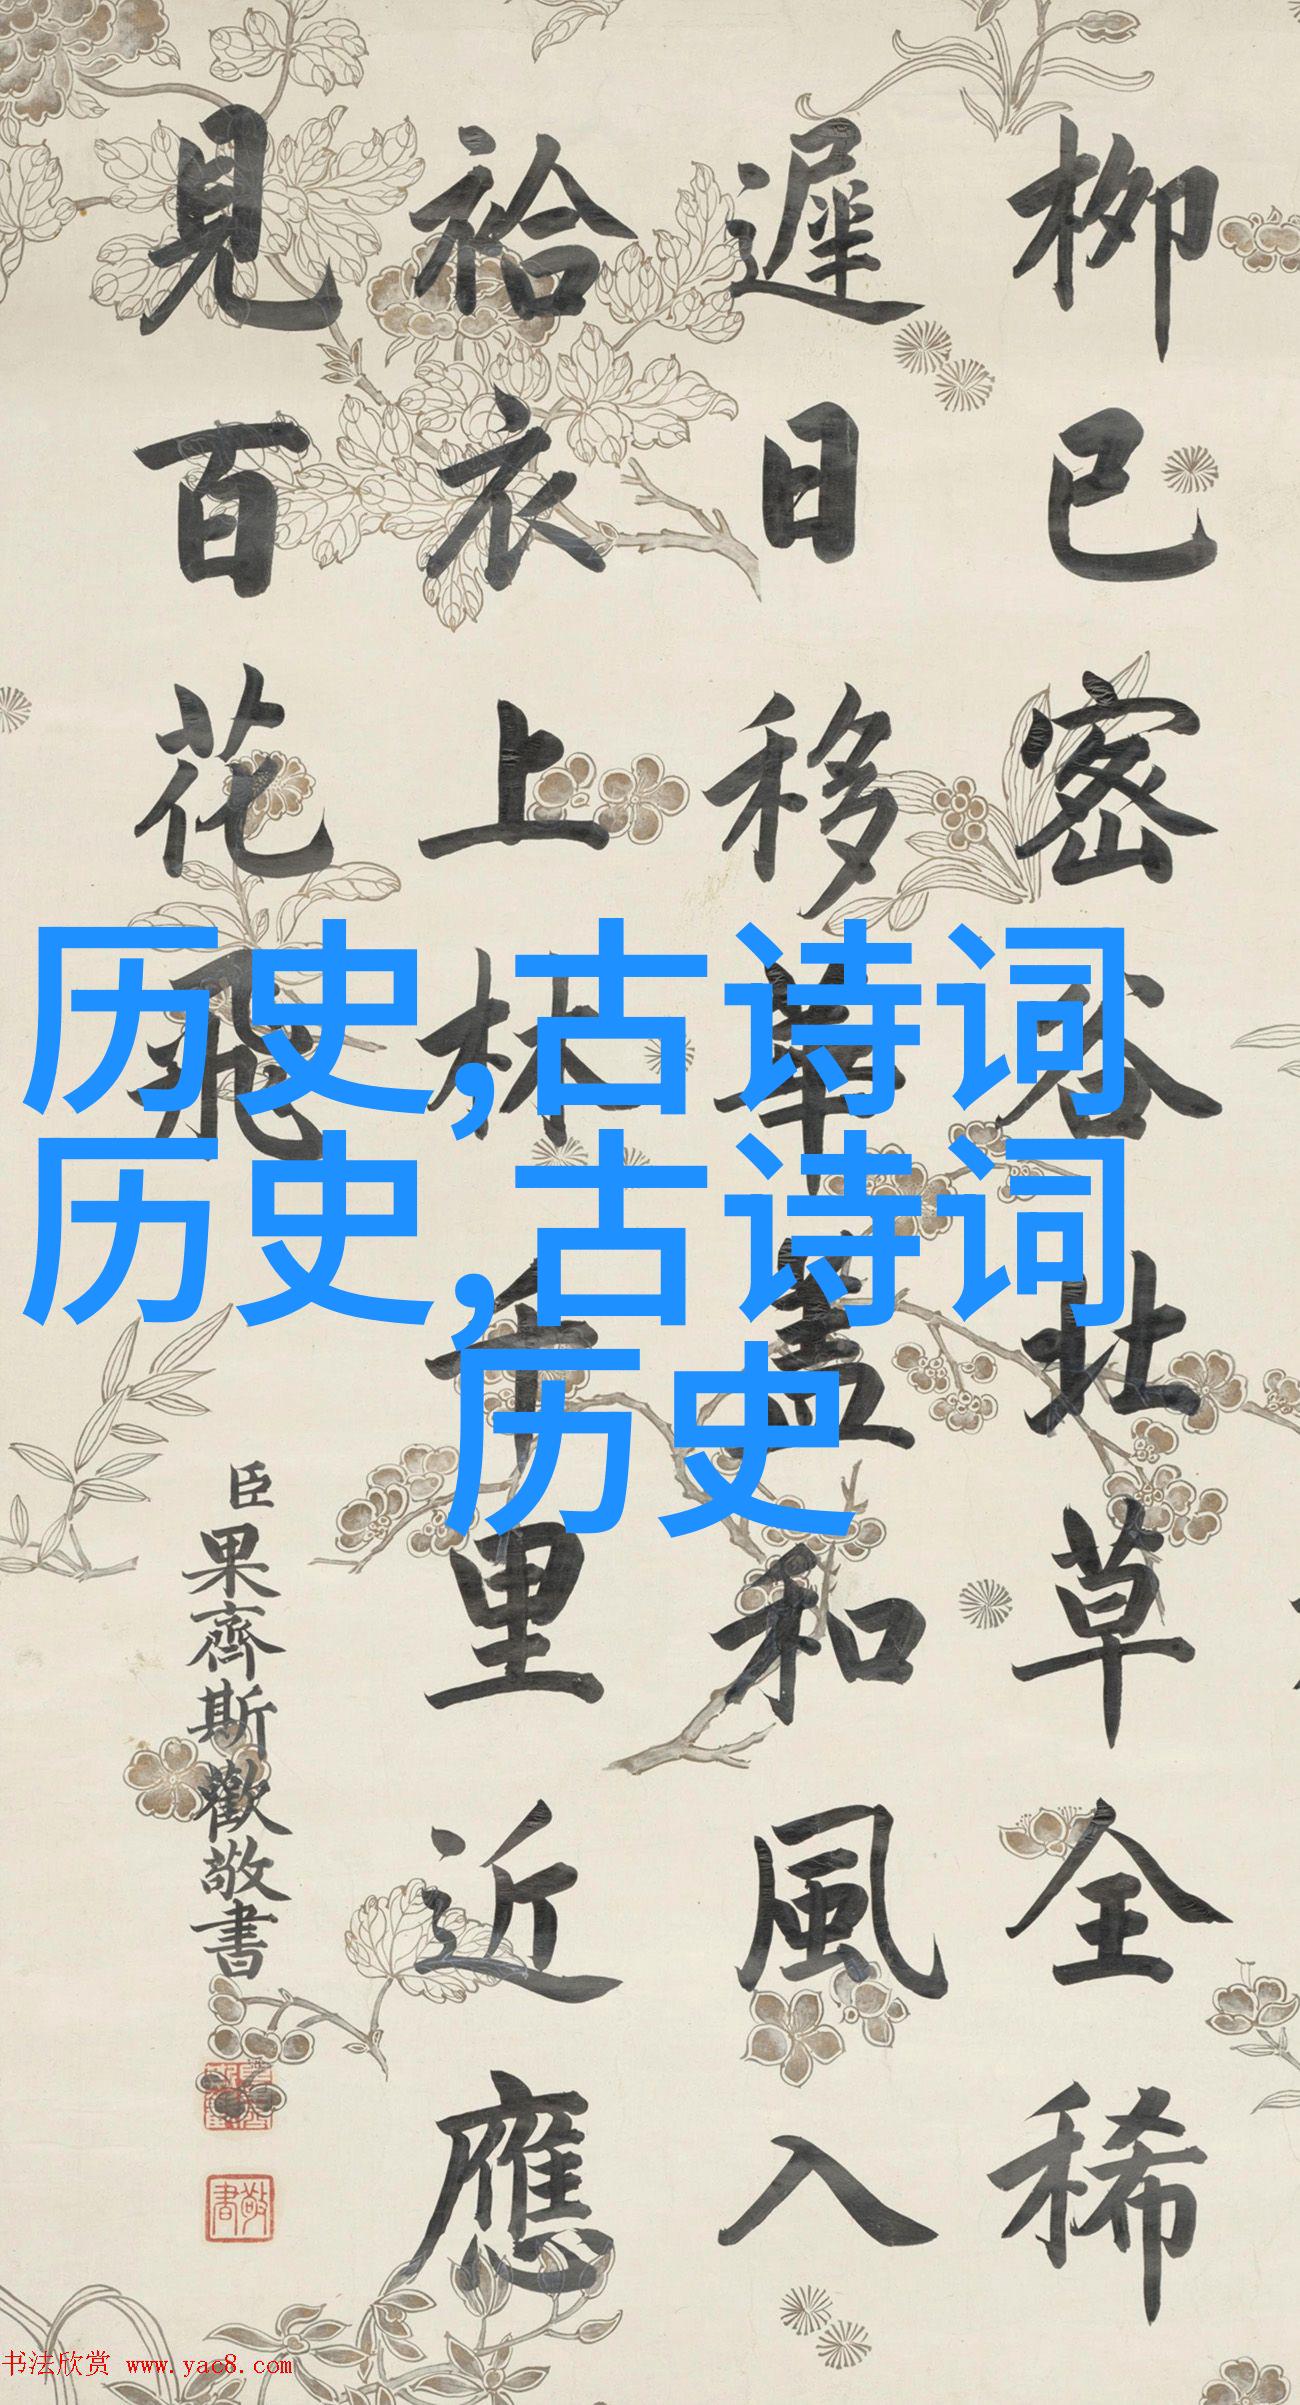 柳已密谷北草全稀
遲日移華蓋和風入
袷衣上林千里近應
見百花飛
臣果齊斯歡敬書
敬書
历史,古诗词
历史,古诗词
历史
书法欣赏 www.yac8.com